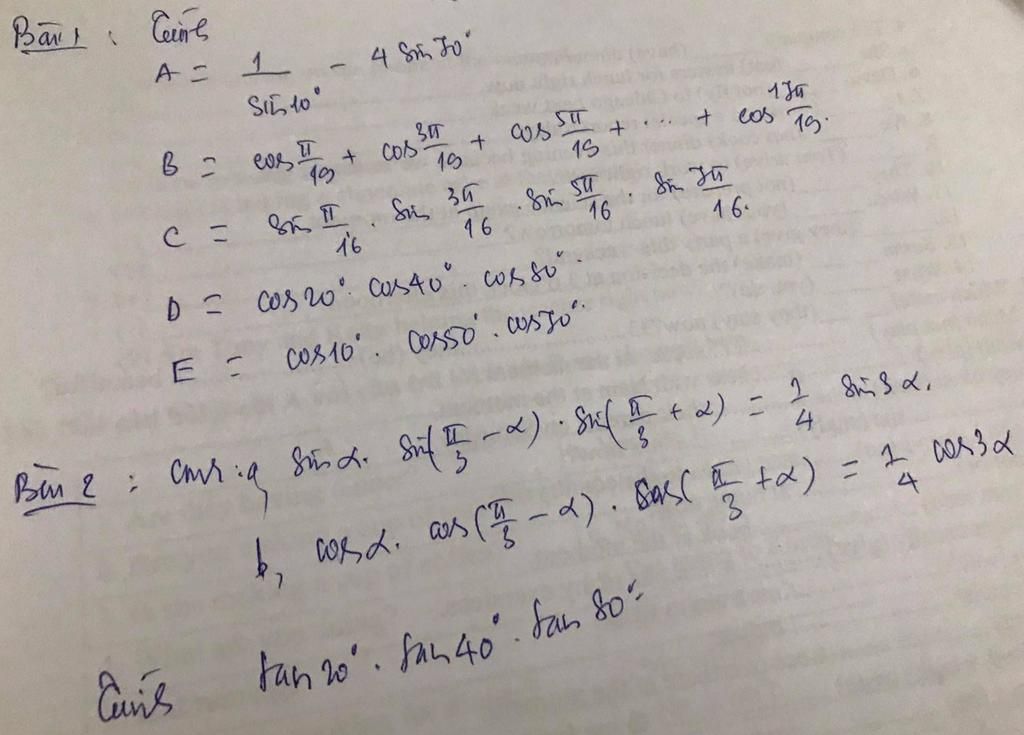 Bài 1 : Tính
A = 1/sin10° - 4 sin70°
B = cos π/19 + cos 3π/19 + cos 5π/19 + ... + cos 17π/19.
C = sin π/16 . sin 3π/16 . sin 5π/16 . sin 7π/16.
D = cos20° . cos40° . cos80°
E = cos10° . cos50° . cos70°.
Bài 2 : cmr : a, sin α . sin(π/3 - α) . sin(π/3 + α) = 1/4 sin3α.
b, cos α . cos(π/3 - α) . cos(π/3 + α) = 1/4 cos3α
Tính tan20° . tan40° . tan80°